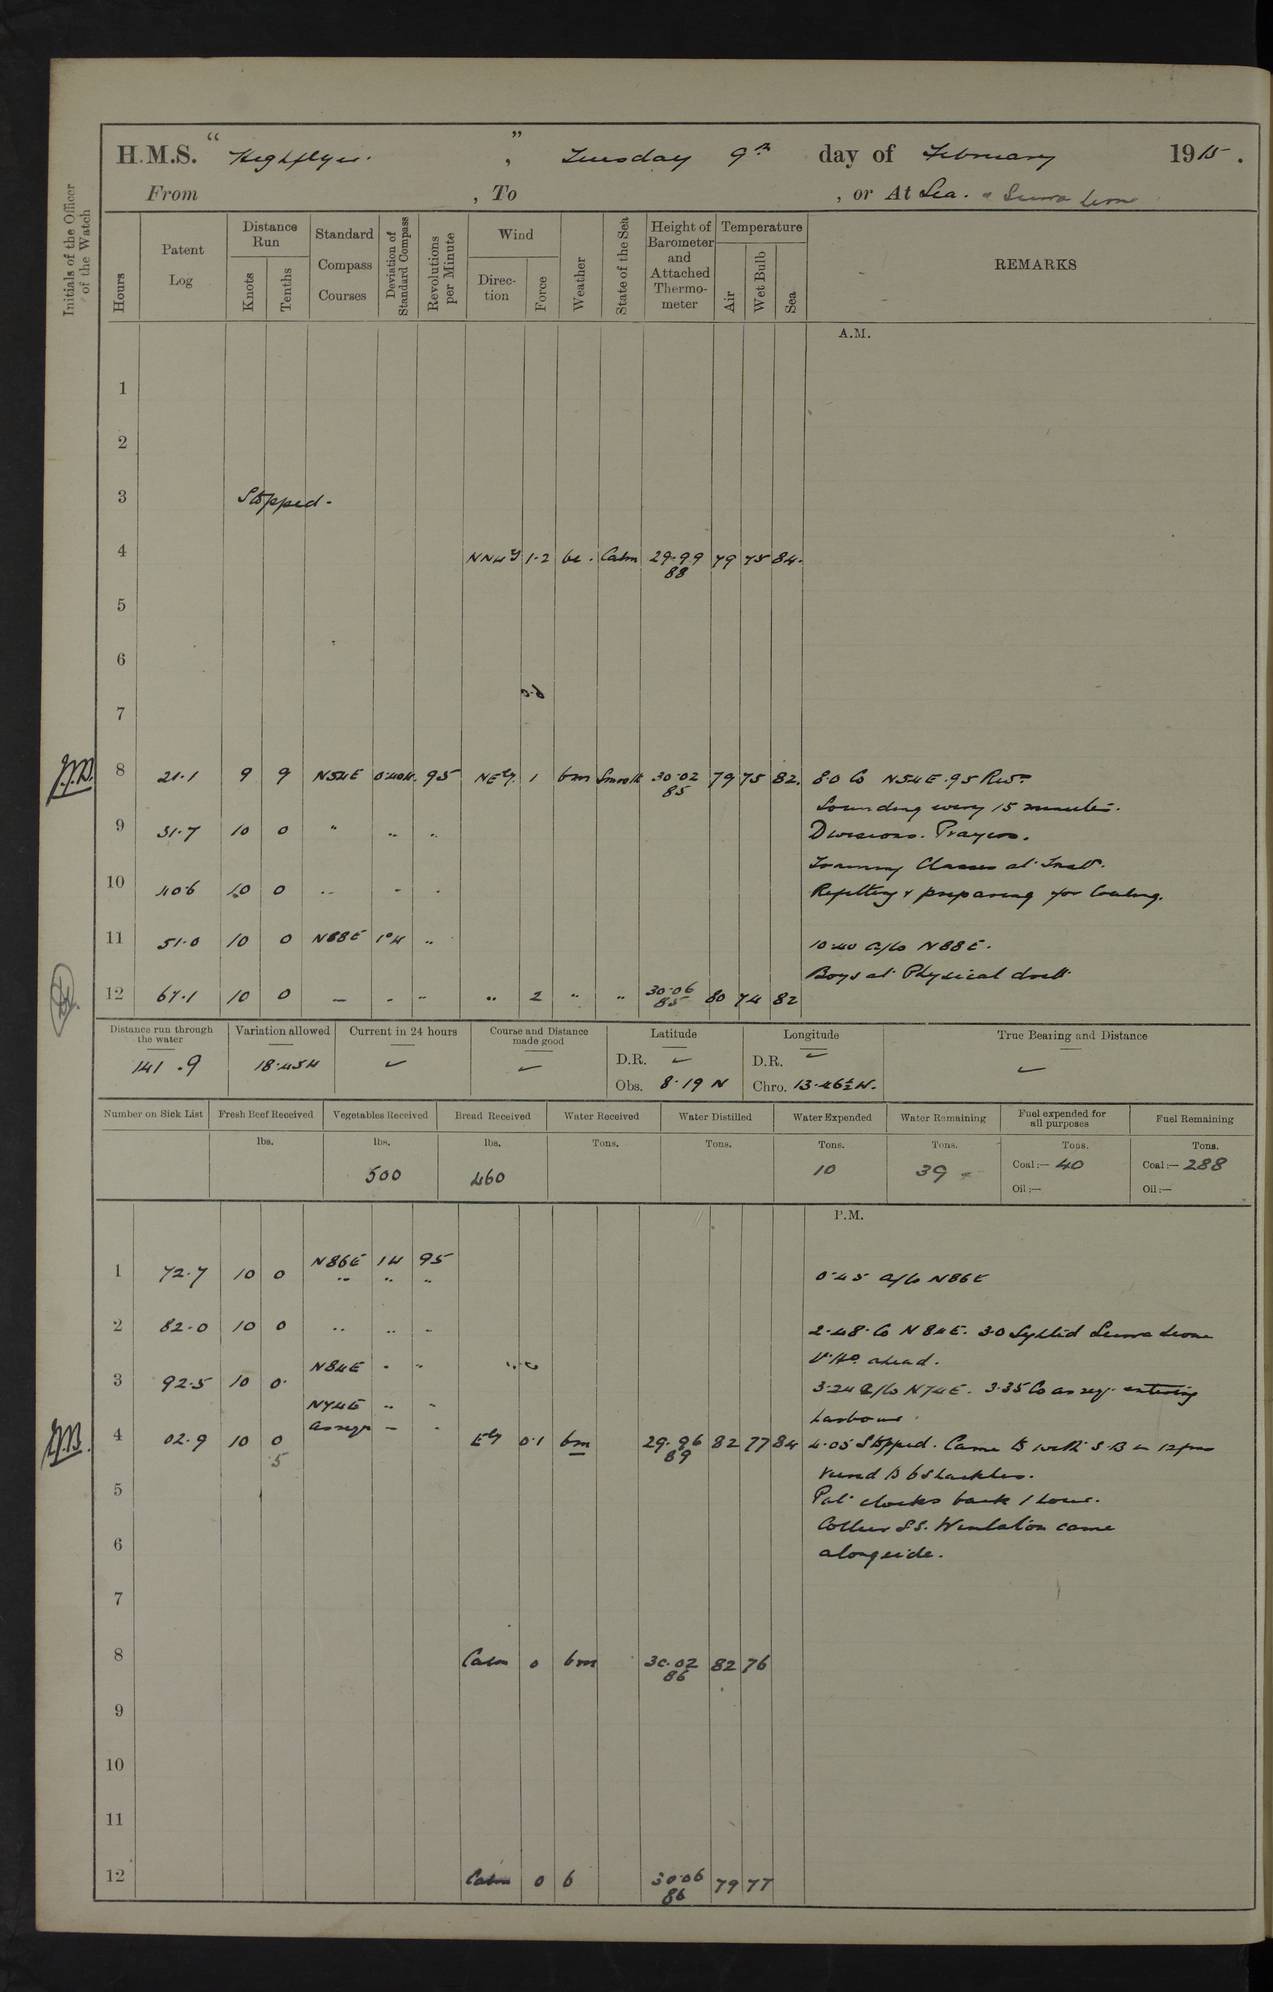 H.M.S. "Highflyer.", Tuesday 9th day of February 1915.
From , To , or At Sea. & Sierra Leone
Initials of the Officer of the Watch
Hours Patent Log Distance Run Knots Tenths Standard Compass Courses Deviation of Standard Compass Revolutions per Minute Wind Direction Force Weather State of the Sea Height of Barometer and Attached Thermometer Temperature Air Wet Bulb Sea REMARKS
A.M.
1
2
3 Stopped.
4 NNW'y 1.2 bc. Calm 29.99 79 75 84.
88
5
6
7
8 21.1 9 9 N54E 0.40W. 95 NE'ly. 1 bm Smooth 30.02 79 75 82. 8.0 Co N54E. 95 Revs
85
Sounding every 15 minutes.
9 31.7 10 0 " " " Divisions. Prayers.
Training Classes at Inst.
10 40.6 10 0 " " " Refitting & preparing for Coaling.
11 51.0 10 0 N88E 1°W " 10.40 a/co N88E.
Boys at Physical drill
12 61.1 10 0 — - " " 2 " " 30.06 80 74 82
85
Distance run through the water Variation allowed Current in 24 hours Course and Distance made good Latitude Longitude True Bearing and Distance
141.9 18.45W D.R. D.R.
Obs. 8.19 N Chro. 13.46½W.
Number on Sick List Fresh Beef Received Vegetables Received Bread Received Water Received Water Distilled Water Expended Water Remaining Fuel expended for all purposes Fuel Remaining
lbs. lbs. lbs. Tons. Tons. Tons. Tons. Tons. Tons.
500 460 10 39 Coal:— 40 Coal:— 288
Oil:— Oil:—
P.M.
N86E 1W 95
1 72.7 10 0 " " " 0.45 a/co N86E
2 82.0 10 0 " " " 2.48. Co N84E. 3.0 Sighted Sierra Leone
N84E " " Lt. Ho. ahead.
3 92.5 10 0. 3.24 a/co N74E. 3.35 Co as req. entering
N74E " "
as req. — - harbour.
4 02.9 10 0 E'ly 0.1 bm 29.96 82 77 84 4.05 Stopped. Came to with S.B in 12 fms
5 89
veered to 6 shackles.
5 Put clocks back 1 hour.
Collier S.S. Winlaton came
6 alongside.
7
8 Calm 0 bm 30.02 82 76
86
9
10
11
12 Calm 0 b 30.06 79 77
86